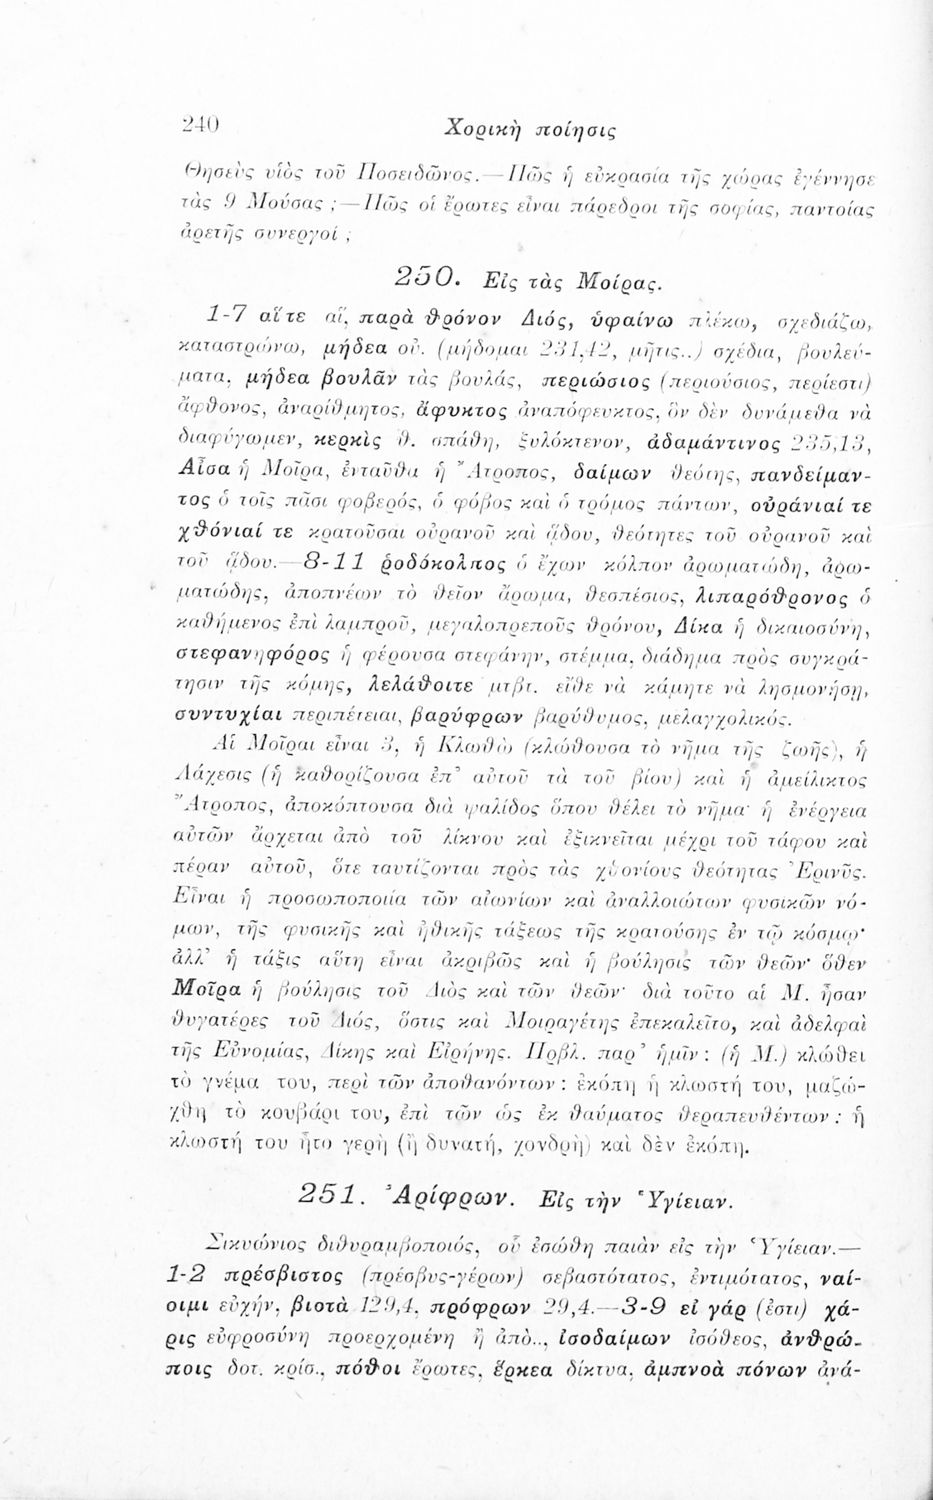 240 Χορικὴ ποίησις
Θησεὺς υἱὸς τοῦ Ποσειδῶνος.—Πῶς ἡ εὐκρασία τῆς χώρας ἐγέννησε
τὰς 9 Μούσας ;—Πῶς οἱ ἔρωτες εἶναι πάρεδροι τῆς σοφίας, παντοίας
ἀρετῆς συνεργοί ;
250. Εἰς τὰς Μοίρας.
1-7 αἵτε αἵ, παρὰ θρόνον Διός, ὑφαίνω πλέκω, σχεδιάζω,
καταστρώνω, μήδεα οὐ. (μήδομαι 231,42, μῆτις..) σχέδια, βουλεύ-
ματα, μήδεα βουλᾶν τὰς βουλάς, περιώσιος (περιούσιος, περίεστι)
ἄφθονος, ἀναρίθμητος, ἄφυκτος ἀναπόφευκτος, ὃν δὲν δυνάμεθα νὰ
διαφύγωμεν, κερκὶς θ. σπάθη, ξυλόκτενον, ἀδαμάντινος 235,13,
Αἶσα ἡ Μοῖρα, ἐνταῦθα ἡ Ἄτροπος, δαίμων θεότης, πανδείμαν-
τος ὁ τοῖς πᾶσι φοβερός, ὁ φόβος καὶ ὁ τρόμος πάντων, οὐράνιαί τε
χθόνιαί τε κρατοῦσαι οὐρανοῦ καὶ ᾅδου, θεότητες τοῦ οὐρανοῦ καὶ
τοῦ ᾅδου.—8-11 ῥοδόκολπος ὁ ἔχων κόλπον ἀρωματώδη, ἀρω-
ματώδης, ἀποπνέων τὸ θεῖον ἄρωμα, θεσπέσιος, λιπαρόθρονος ὁ
καθήμενος ἐπὶ λαμπροῦ, μεγαλοπρεποῦς θρόνου, Δίκα ἡ δικαιοσύνη,
στεφανηφόρος ἡ φέρουσα στεφάνην, στέμμα, διάδημα πρὸς συγκρά-
τησιν τῆς κόμης, λελάθοιτε μτβτ. εἴθε νὰ κάμητε νὰ λησμονήσῃ,
συντυχίαι περιπέτειαι, βαρύφρων βαρύθυμος, μελαγχολικός.
Αἱ Μοῖραι εἶναι 3, ἡ Κλωθὼ (κλώθουσα τὸ νῆμα τῆς ζωῆς), ἡ
Λάχεσις (ἡ καθορίζουσα ἐπ' αὐτοῦ τὰ τοῦ βίου) καὶ ἡ ἀμείλικτος
Ἄτροπος, ἀποκόπτουσα διὰ ψαλίδος ὅπου θέλει τὸ νῆμα· ἡ ἐνέργεια
αὐτῶν ἄρχεται ἀπὸ τοῦ λίκνου καὶ ἐξικνεῖται μέχρι τοῦ τάφου καὶ
πέραν αὐτοῦ, ὅτε ταυτίζονται πρὸς τὰς χθονίους θεότητας Ἐρινῦς.
Εἶναι ἡ προσωποποιία τῶν αἰωνίων καὶ ἀναλλοιώτων φυσικῶν νό-
μων, τῆς φυσικῆς καὶ ἠθικῆς τάξεως τῆς κρατούσης ἐν τῷ κόσμῳ·
ἀλλ' ἡ τάξις αὕτη εἶναι ἀκριβῶς καὶ ἡ βούλησις τῶν θεῶν· ὅθεν
Μοῖρα ἡ βούλησις τοῦ Διὸς καὶ τῶν θεῶν· διὰ τοῦτο αἱ Μ. ἦσαν
θυγατέρες τοῦ Διός, ὅστις καὶ Μοιραγέτης ἐπεκαλεῖτο, καὶ ἀδελφαὶ
τῆς Εὐνομίας, Δίκης καὶ Εἰρήνης. Πρβλ. παρ' ἡμῖν : (ἡ Μ.) κλώθει
τὸ γνέμα του, περὶ τῶν ἀποθανόντων : ἐκόπη ἡ κλωστή του, μαζώ-
χθη τὸ κουβάρι του, ἐπὶ τῶν ὡς ἐκ θαύματος θεραπευθέντων : ἡ
κλωστή του ἦτο γερὴ (ἢ δυνατή, χονδρὴ) καὶ δὲν ἐκόπη.
251. Ἀρίφρων. Εἰς τὴν Ὑγίειαν.
Σικυώνιος διθυραμβοποιός, οὗ ἐσώθη παιὰν εἰς τὴν Ὑγίειαν.—
1-2 πρέσβιστος (πρέσβυς-γέρων) σεβαστότατος, ἐντιμότατος, ναί-
οιμι εὐχήν, βιοτὰ 129,4, πρόφρων 29,4.—3-9 εἰ γάρ (ἐστι) χά-
ρις εὐφροσύνη προερχομένη ἢ ἀπὸ.., ἰσοδαίμων ἰσόθεος, ἀνθρώ-
ποις δοτ. κρίσ., πόθοι ἔρωτες, ἕρκεα δίκτυα, ἀμπνοὰ πόνων ἀνά-